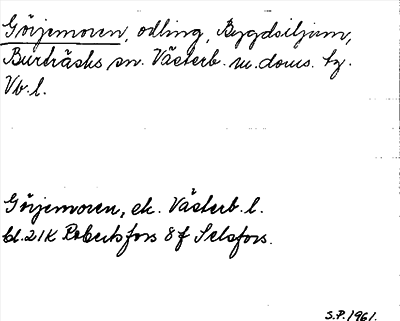 Görjemoren, odling, Bygdsiljum,
Burträsks sn. Västerb. m. doms. tg.
Vb.l.
Görjemoren, ek. Västerb.l.
bl.21K Robertsfors 8f Selsfors.
S.P.1961.